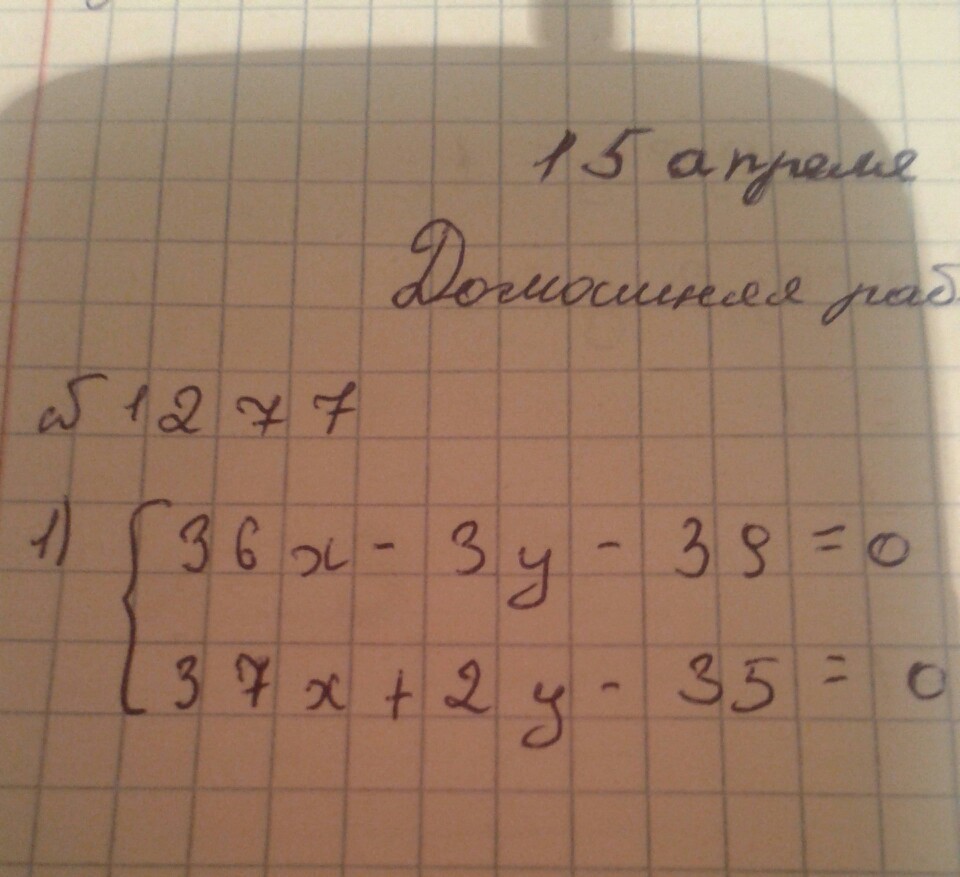 15 апреля
Домашняя раб
№1277
1) { 36x - 3y - 39 = 0
37x + 2y - 35 = 0